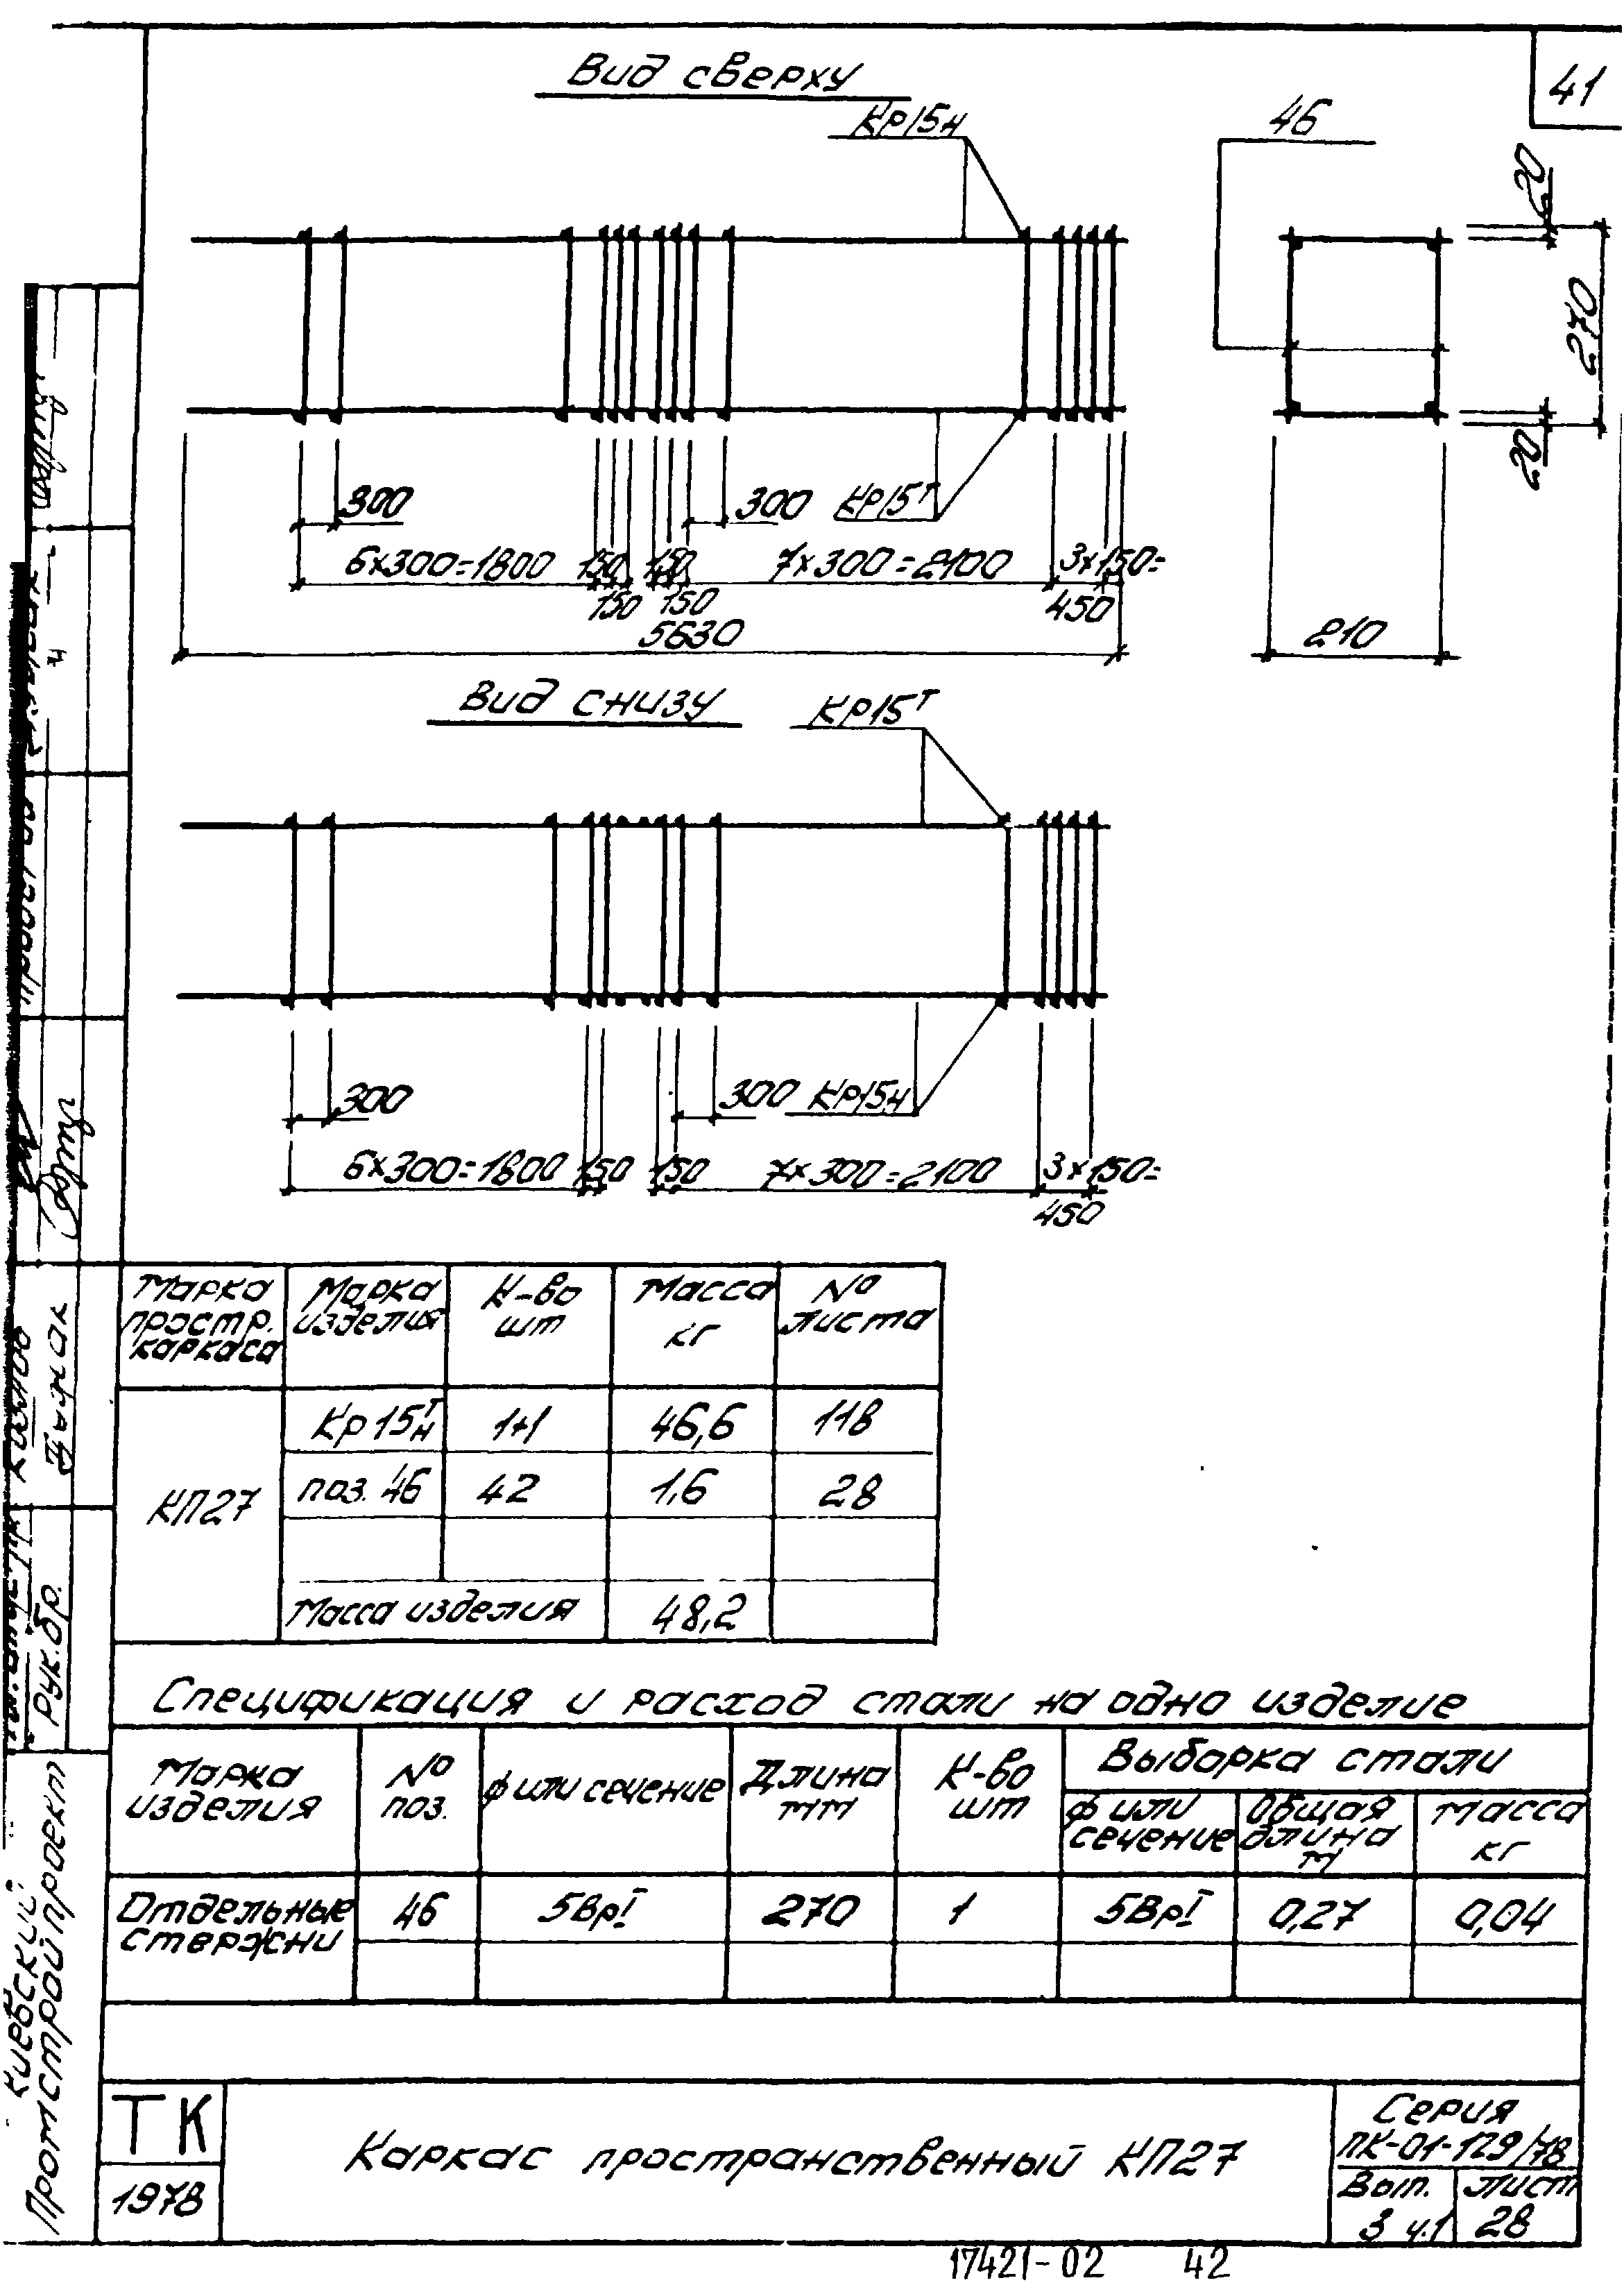 41
Вид сверху
Кр15н
46
20
270
20
300
300
Кр15т
6х300=1800
150
150
7х300=2100
3х150=
150
150
450
5630
210
Вид снизу
Кр15т
300
300
Кр15н
6х300=1800
150
150
7х300=2100
3х150=
450
Марка простр. каркаса
Марка изделия
К-во шт
Масса кг
№ листа
КП27
Кр15т/н
1+1
46,6
118
поз. 46
42
1,6
28
Масса изделия
48,2
Спецификация и расход стали на одно изделие
Марка изделия
№ поз.
ф или сечение
Длина мм
К-во шт
Выборка стали
ф или сечение
Общая длина м
Масса кг
Отдельные стержни
46
5ВрI
270
1
5ВрI
0,27
0,04
ТК
1978
Каркас пространственный КП27
Серия
ПК-01-129/78
Вып.
3 ч.1
Лист
28
17421-02 42
Киевский
Промстройпроект
Рук.бр.